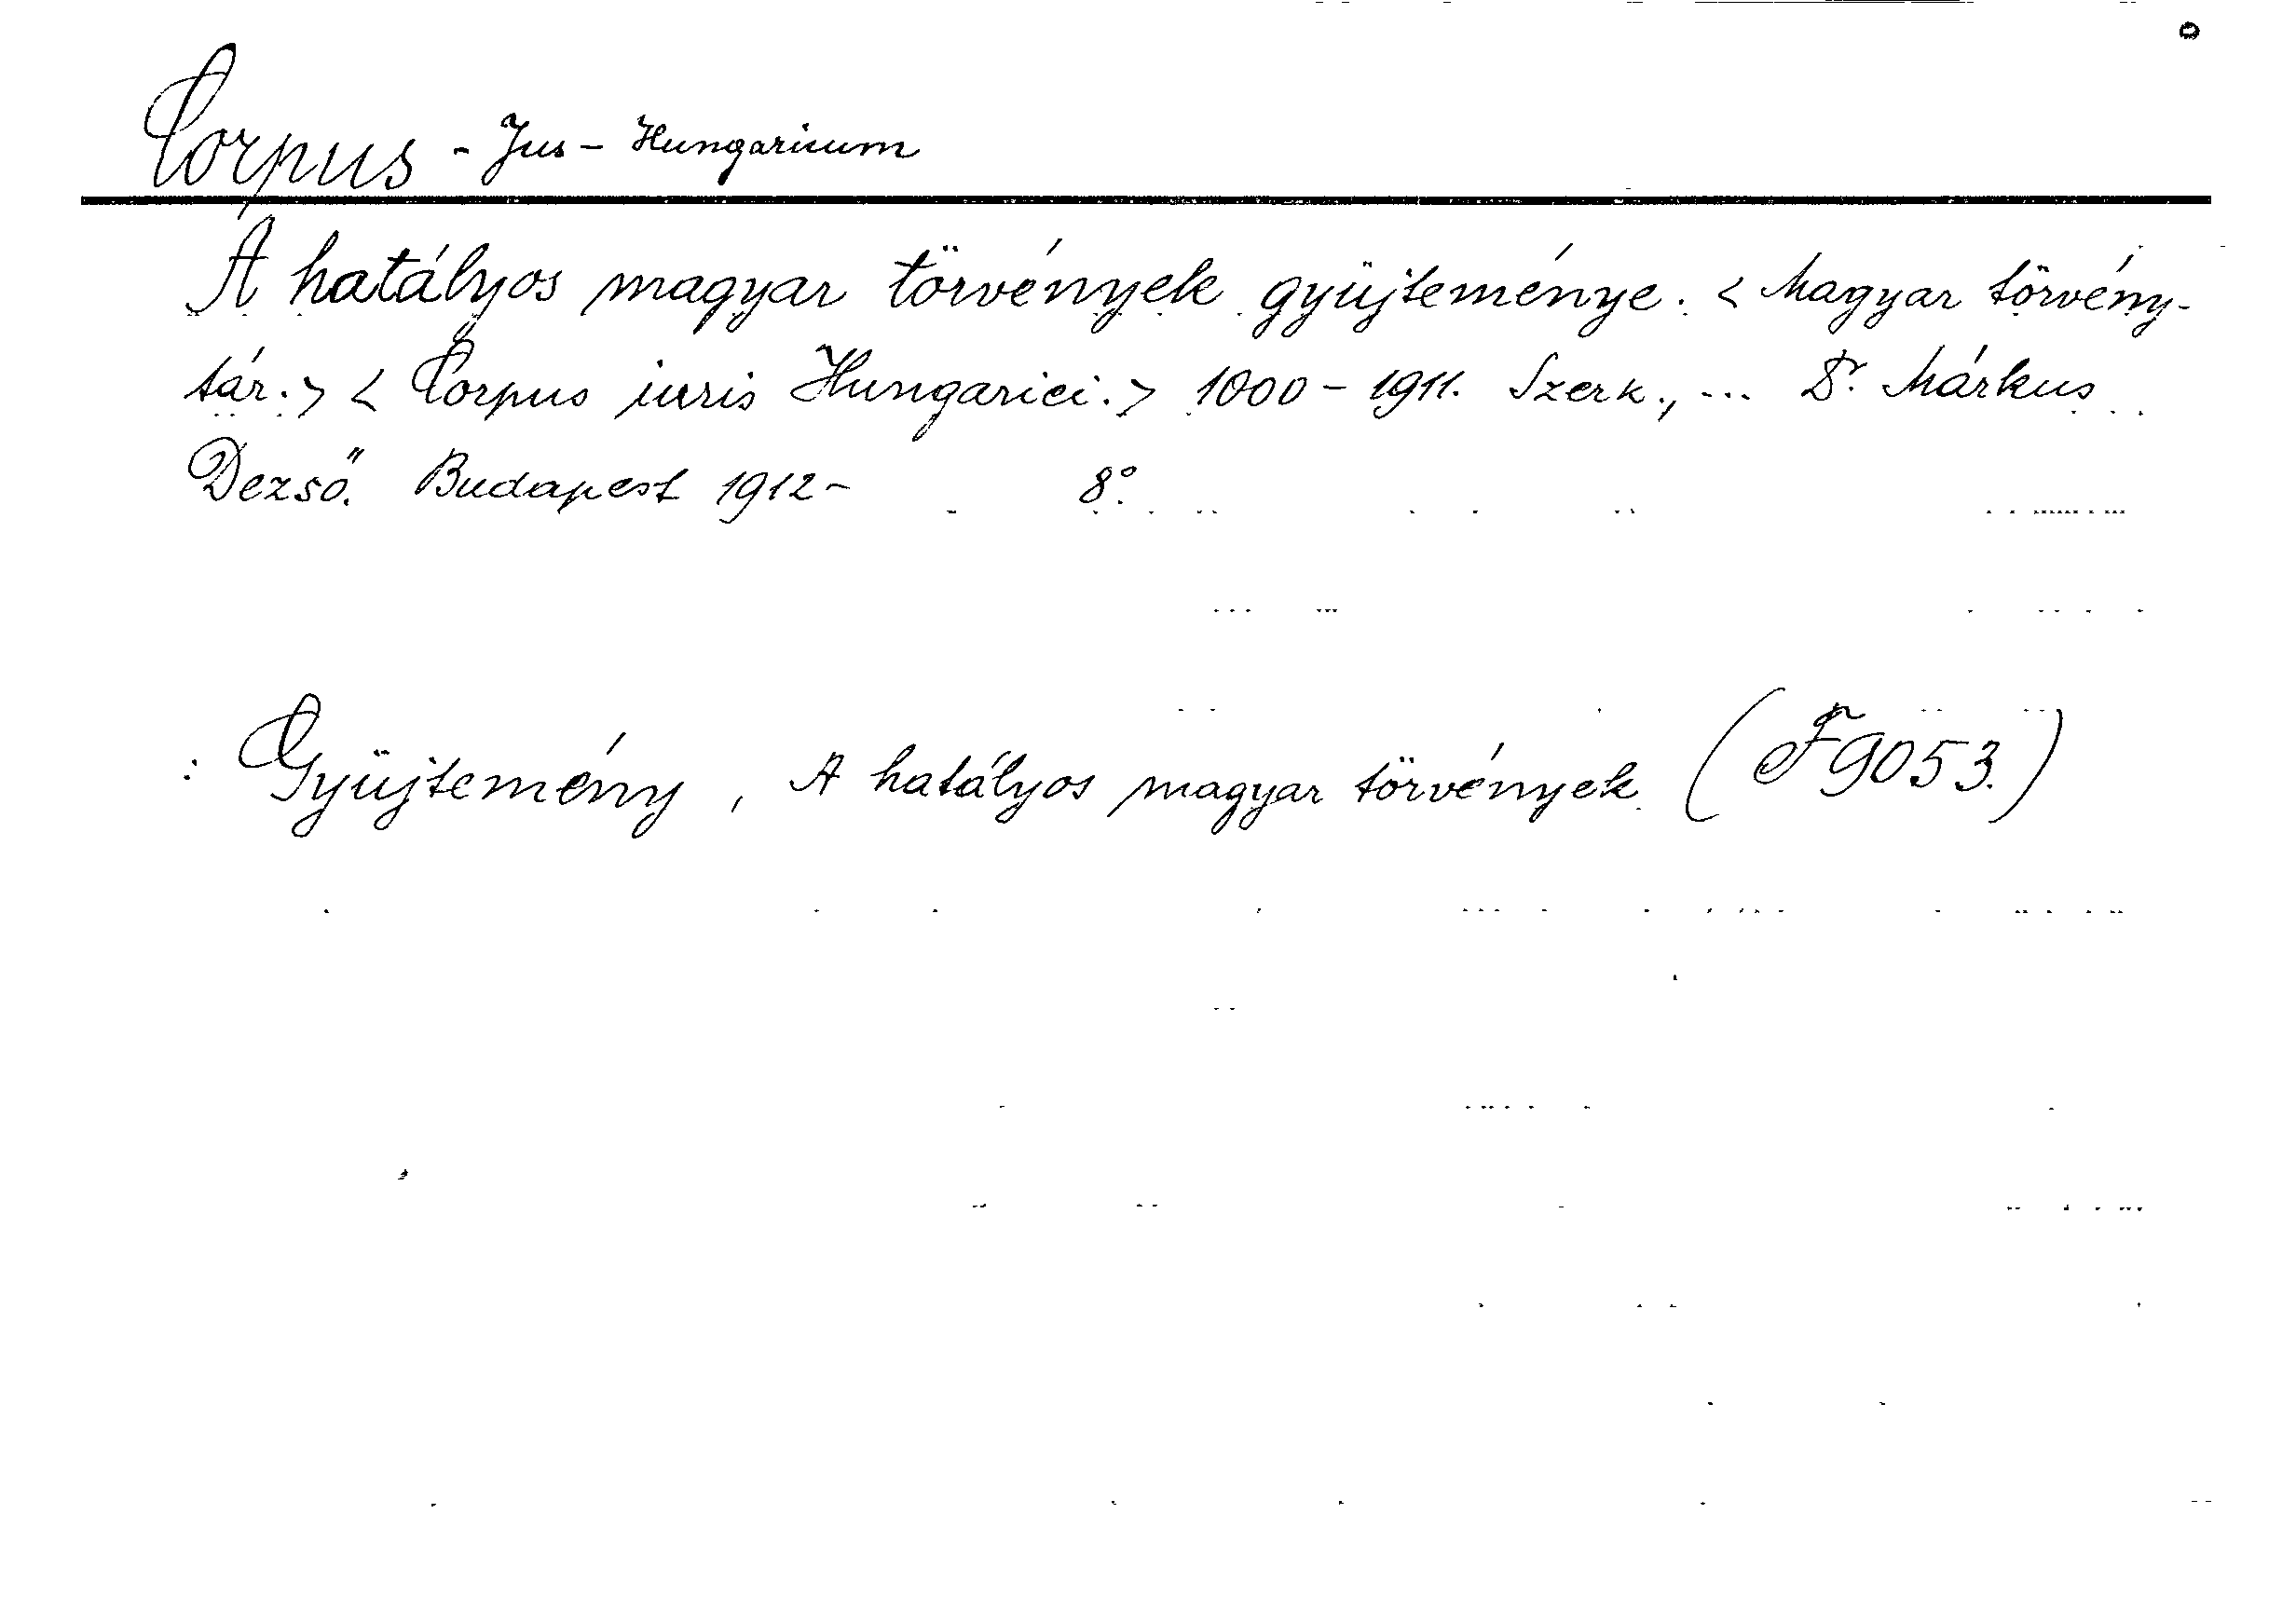 Corpus - Jus - Hungaricum
A hatályos magyar törvények gyüjteménye. < Magyar törvény-
tár. > < Corpus iuris Hungarici. > 1000 - 1911. Szerk., ... Dr. Márkus
Dezső. Budapest 1912 - 8°.
: Gyüjtemény, A hatályos magyar törvények (F 9053.)